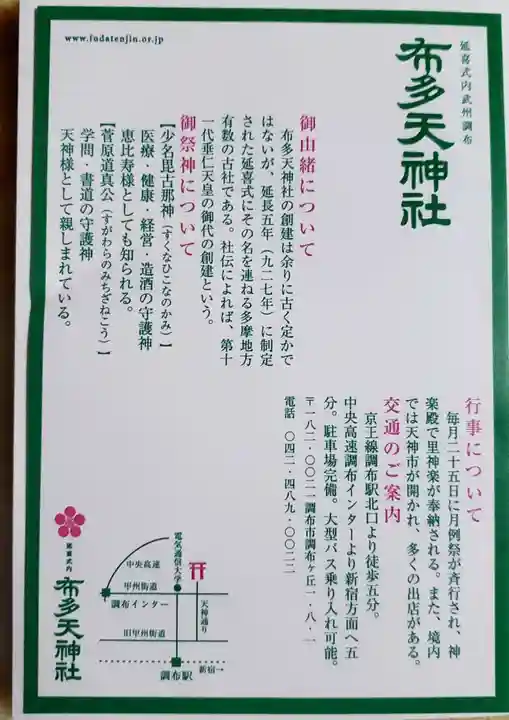 www.fudatenjin.or.jp
延喜式内武州調布
布多天神社
御由緒について
布多天神社の創建は余りに古く定かで
はないが、延長五年（九二七年）に制定
された延喜式にその名を連ねる多摩地方
有数の古社である。社伝によれば、第十
一代垂仁天皇の御代の創建という。
御祭神について
【少名毘古那神（すくなひこなのかみ）】
医療・健康・経営・造酒の守護神
恵比寿様としても知られる。
【菅原道真公（すがわらのみちざねこう）】
学問・書道の守護神
天神様として親しまれている。
行事について
毎月二十五日に月例祭が斉行され、神
楽殿で里神楽が奉納される。また、境内
では天神市が開かれ、多くの出店がある。
交通のご案内
京王線調布駅北口より徒歩五分。
中央高速調布インターより新宿方面へ五
分。駐車場完備。大型バス乗り入れ可能。
〒一八二・〇〇二一調布市調布ヶ丘一・八・一
電話 〇四二・四八九・〇〇二二
延喜式内
布多天神社
中央高速
電気通信大学
甲州街道
調布インター
天神通り
旧甲州街道
新宿→
調布駅